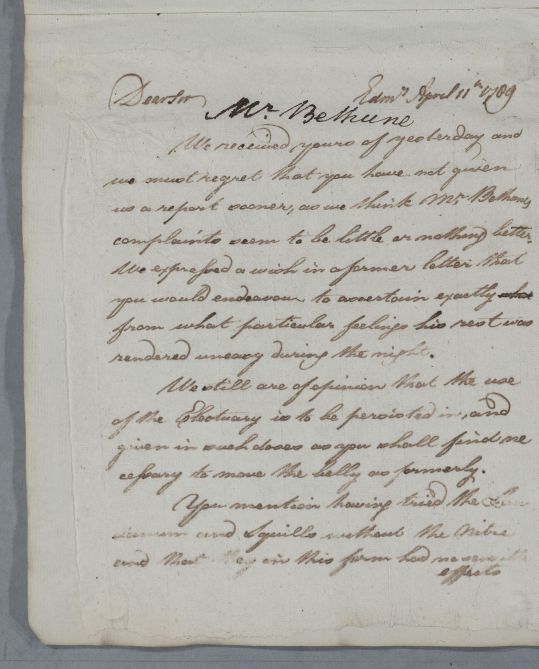 Dear Sir Edinr April 11th 1789
Mr. Bethune
We received yours of yesterday and
we must regret that you have not given
us a report sooner, as we think Mr Bethune's
complaints seem to be little or nothing better.
We expressed a wish in a former letter that
you would endeavour to ascertain exactly
from what particular feelings his rest was
rendered uneasy during the night.
We still are of opinion that the use
of the Electuary is to be persisted in, and
given in such doses as you shall find ne
cessary to move the belly as formerly.
You mention having tried the
and Squills without the Nitre
and that they in this form had no sensible
effects